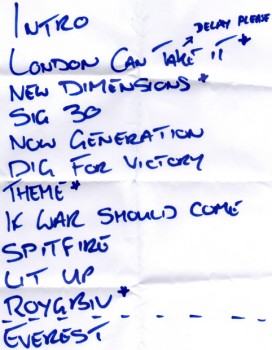 INTRO
DELAY PLEASE
LONDON CAN TAKE IT *
NEW DIMENSIONS *
SIG 30
NOW GENERATION
DIG FOR VICTORY
THEME *
IF WAR SHOULD COME
SPITFIRE
LIT UP
ROYGBIV *
EVEREST